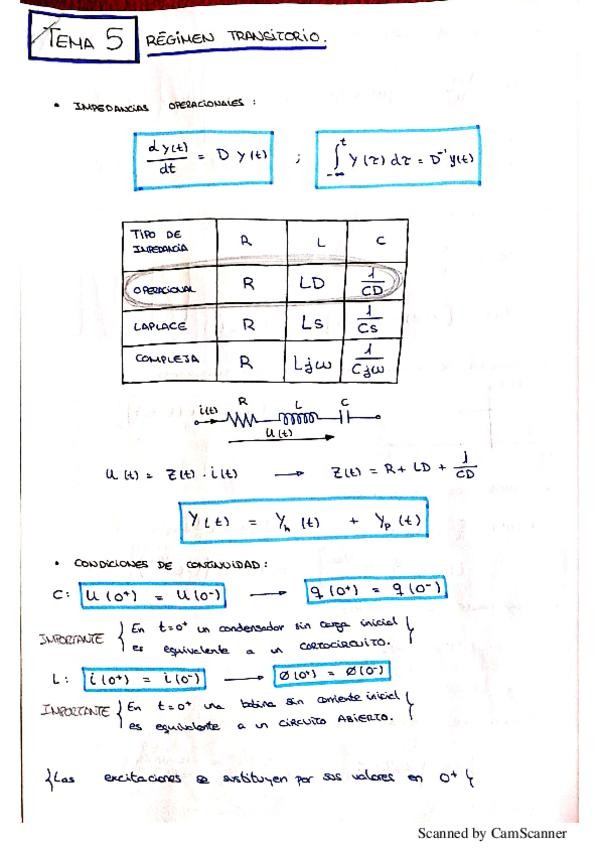 TEMA 5 RÉGIMEN TRANSITORIO.
• IMPEDANCIAS OPERACIONALES :
dy(t)/dt = D y(t) ; ∫_{-∞}^{t} y(τ) dτ = D⁻¹ y(t)
TIPO DE IMPEDANCIA R L C
OPERACIONAL R LD 1/CD
LAPLACE R Ls 1/Cs
COMPLEJA R Ljω 1/Cjω
i(t) R L C
u(t)
u(t) = Z(t) · i(t) → Z(t) = R + LD + 1/CD
Y(t) = Yh (t) + Yp (t)
• CONDICIONES DE CONTINUIDAD :
C: u(0⁺) = u(0⁻) → q(0⁺) = q(0⁻)
IMPORTANTE { En t=0⁺ un condensador sin carga inicial
es equivalente a un CORTOCIRCUITO. }
L: i(0⁺) = i(0⁻) → Ø(0⁺) = Ø(0⁻)
IMPORTANTE { En t=0⁺ una bobina sin corriente inicial
es equivalente a un CIRCUITO ABIERTO. }
{Las excitaciones se sustituyen por sus valores en 0⁺}
Scanned by CamScanner